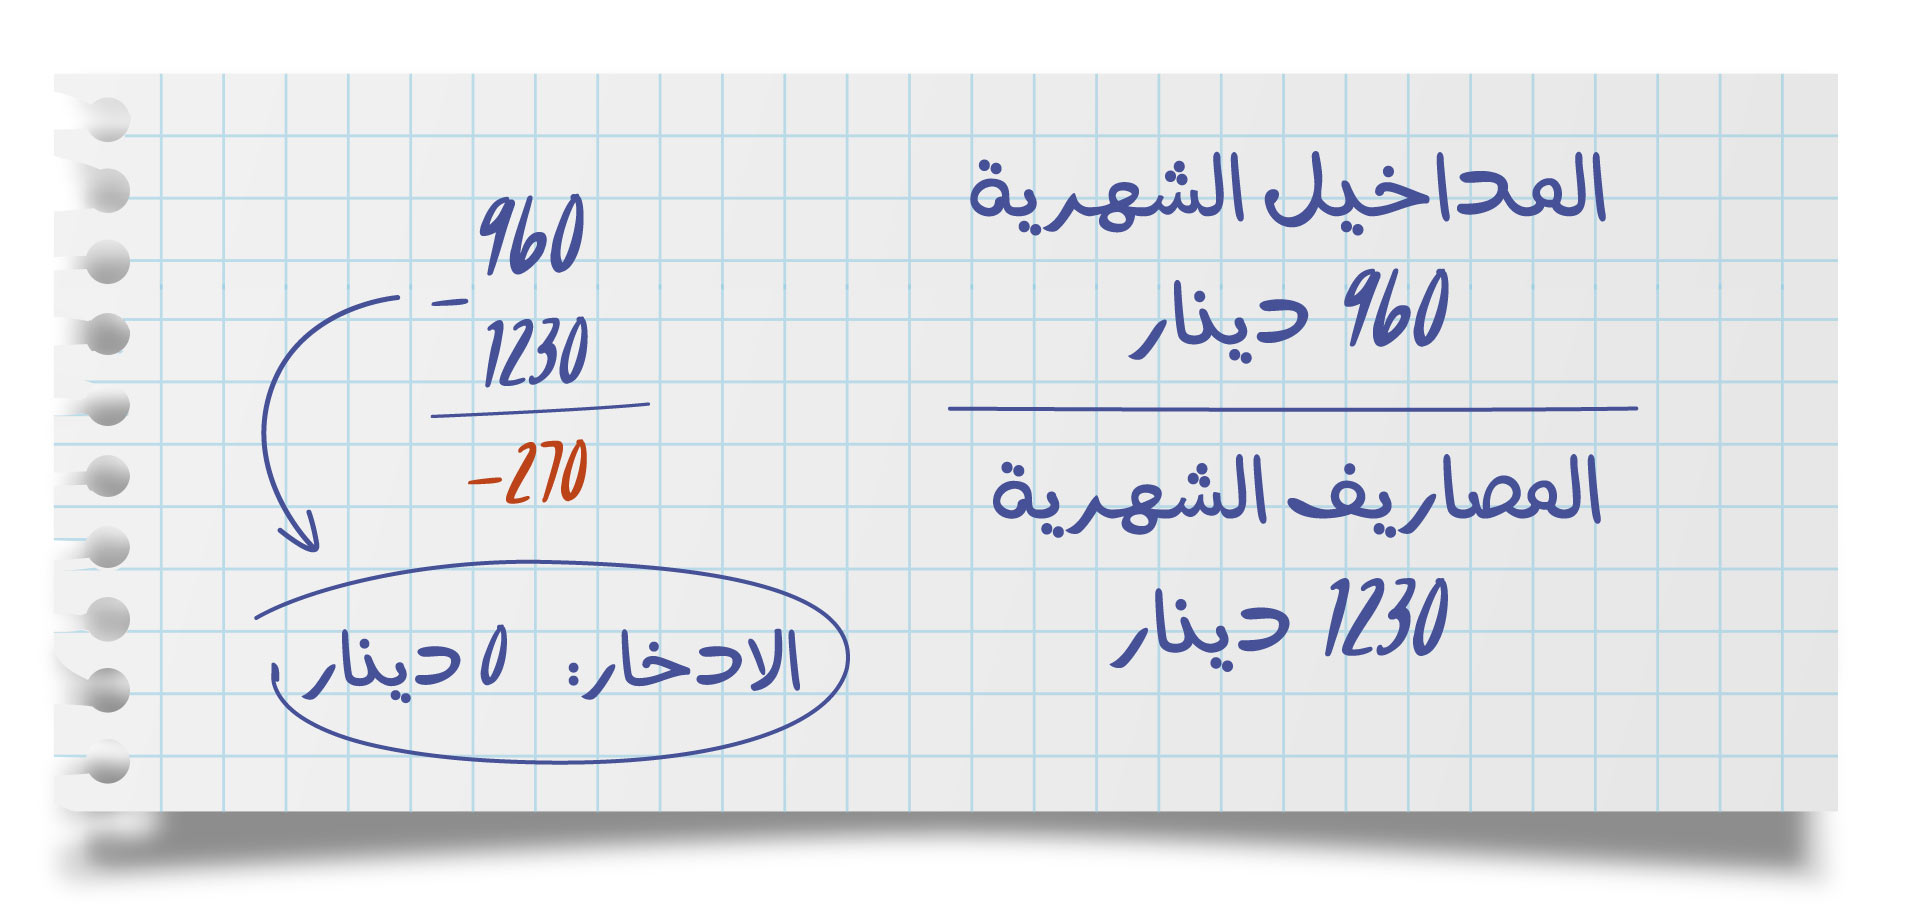 المداخيل الشهرية
960 دينار
المصاريف الشهرية
1230 دينار
960
-
1230
-270
الادخار: 0 دينار